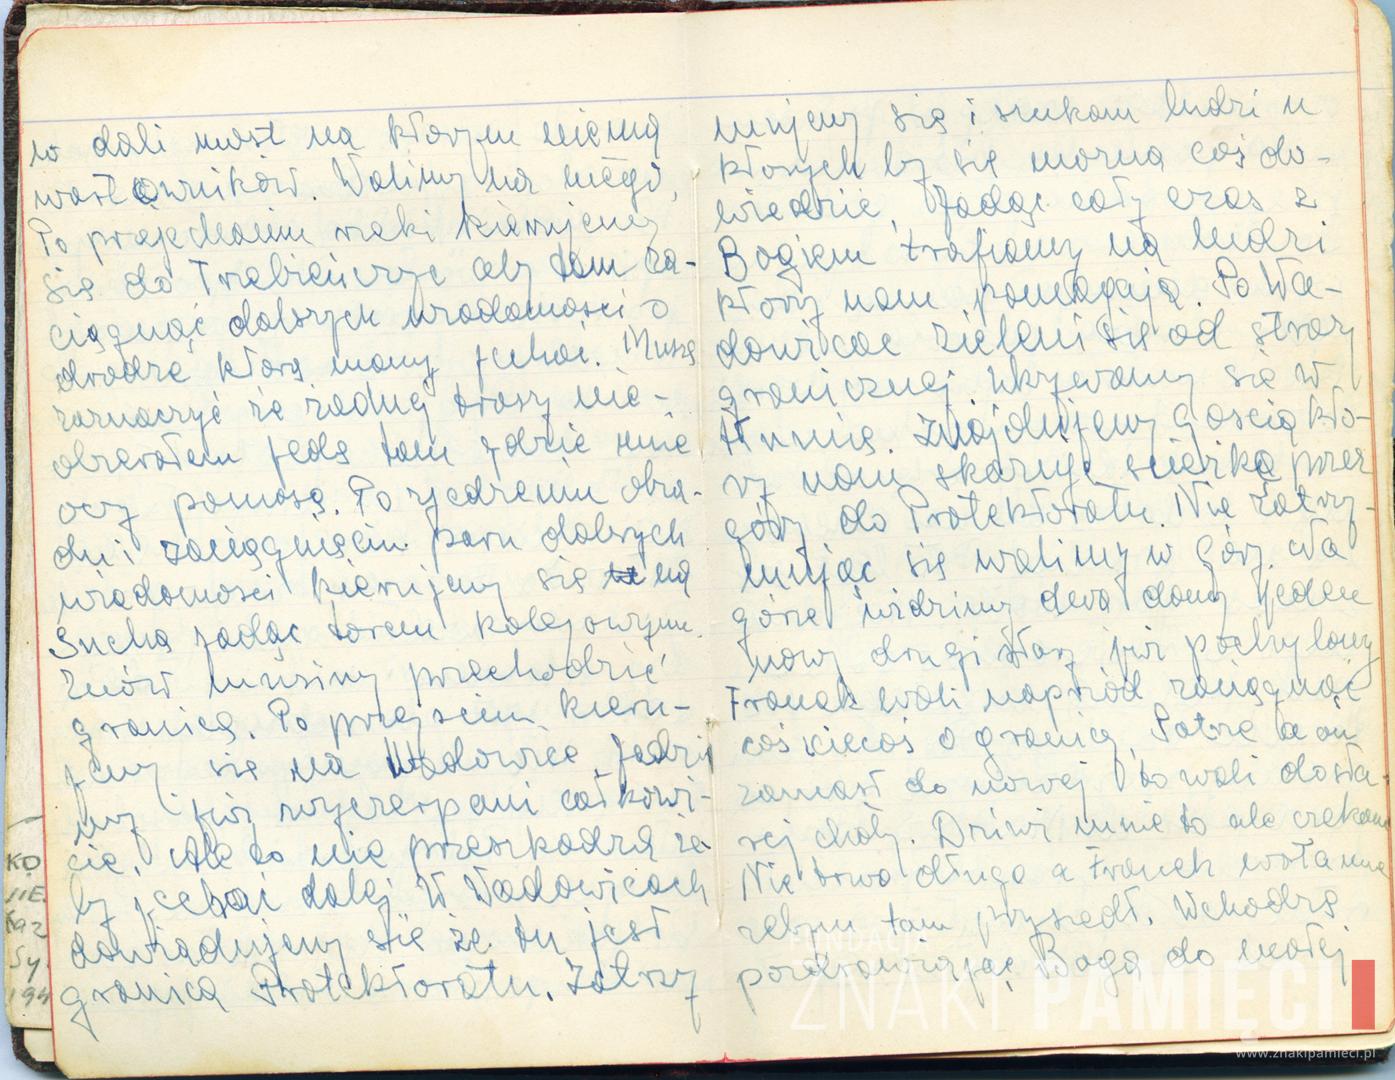 w dali most na kłorym niema
wartowników. Walimy na niego,
Po przejechaniu rzeki kierujemy
się do Trebieńczyc aby tam za-
ciągnąć dobrych wiadomości o
drodze którą mamy jechać. Muszę
zaznaczyć że żadnej trasy nie-
obrałem jedę tam gdzie mnie
oczy poniosą. Po zjedzeniu obia-
du i zaciągnięciu paru dobrych
wiadomości kierujemy się na
Suchą jadąc torem kolejowym.
Znów musimy przechodzić
granicę. Po przejściu kieru-
jemy się na Wadowice. Jedzie
my już wyczerpani całkowi-
cie. Ale to nie przeszkadza że
by jechać dalej W Wadowicach
dowiadujemy się że tu jest
granica Protekłoratu. Zatrzy
mujemy się i szukam ludzi u
kłorych by się można coś do-
wiedzieć. Jadąc cały czas z
Bogiem trafiamy na ludzi
kłorzy nam pomagają. Po Wa-
dowicac zieleni się od straży
granicznej ukrywamy się w
tłumie. Znajdujemy gościa kło-
ry nam skazuje scieżkę przez
góry do Protekłoratu. Nie zatrzy-
mując się walimy w góry. Na
górze widzimy dwa domy jeden
nowy drugi stary już pochylony
Franek wali naprzód zaciągnąć
coś niecoś o granicę. Patrzę a on
zamiast do nowej to wali do sta-
rej chały. Dziwi mnie to ale czekam
Nie trwa długo a Franek woła mnie
żebym tam przyszedł. Wchodzę
pozdrawiając Boga do małej
KO
NIE
Kaz
Sy
194
FUNDACJA
ZNAKI PAMIĘCI
www.znakipamieci.pl